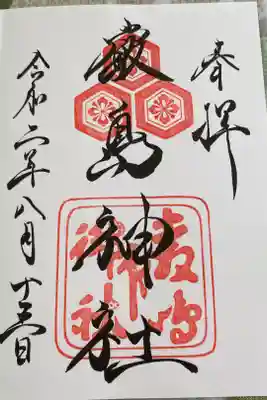 奉拝
嚴島神社
令和二年八月十三日